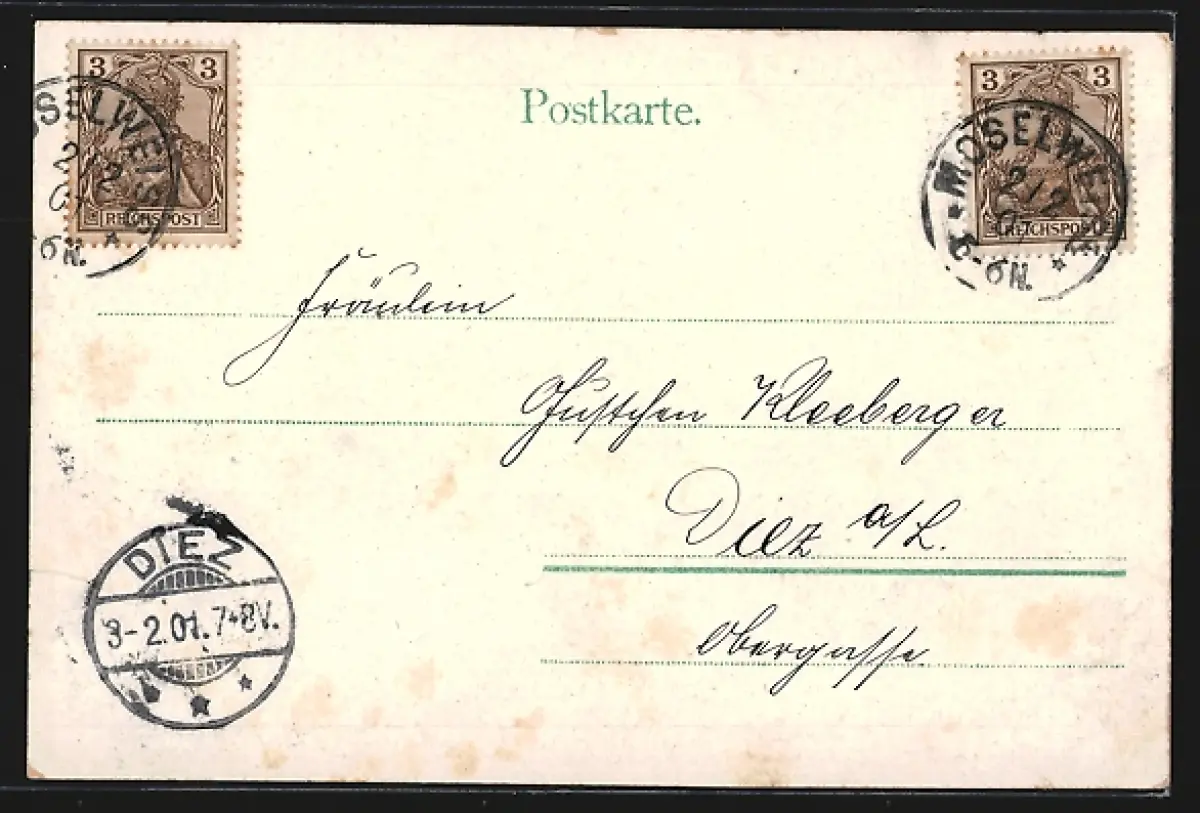 3 3
REICHSPOST
MOSELWEISS
2/2
5-6N.
Postkarte.
3 3
REICHSPOST
MOSELWE
2/2
01
5-6N.
Fräulein
Gustchen Kleeberger
Diez a/L.
Obergasse
DIEZ
3-2.01.7-8V.